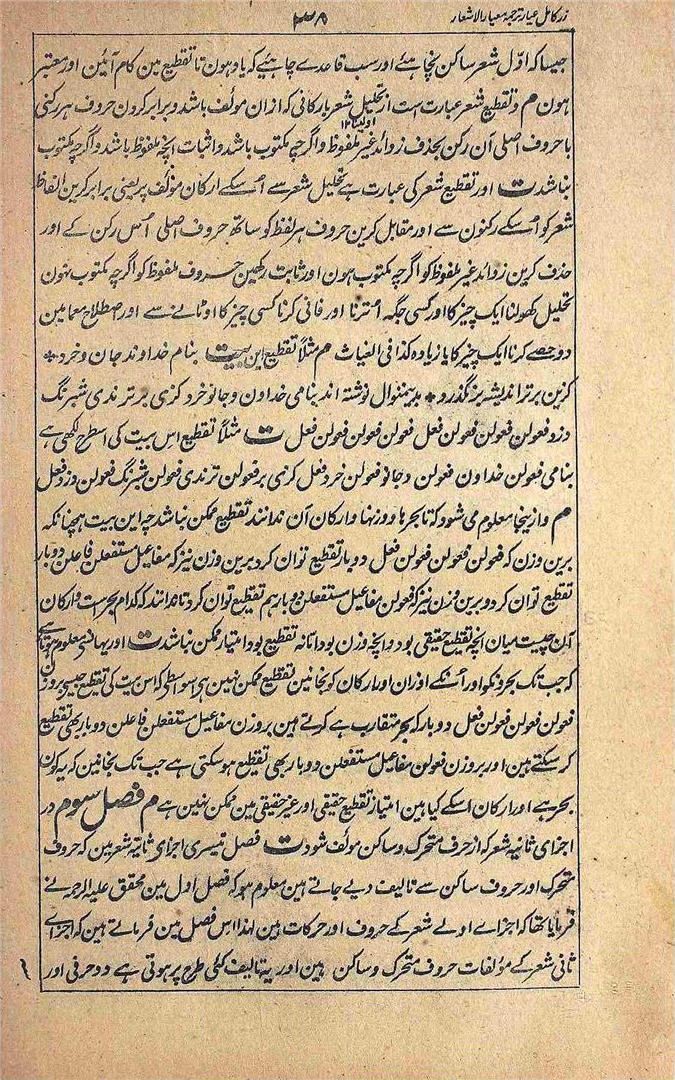 زر کامل عیار ترجمۂ معیار الاشعار
۳۸
جیسا کہ اوّل شعر ساکن نچاہئے اور سب قاعدے چاہئیے کہ یاد ہون تا تقطیع مین کام آئین اور معتبر
ہون م و تقطیع شعر عبارت است از تحلیل شعر بارکانی کہ ازان مولف باشد و برابر کردن حروف ہر رکنی
با حروف اصلی آن رکن بحذف زوائد غیر ملفوظ و اگرچہ مکتوب باشد و اثبات انچہ ملفوظ باشد و اگرچہ مکتوب
نباشد ت اور تقطیع شعر کی عبارت ہے تحلیل شعر سے اُسکے ارکان مولف پر یعنی برابر کرین الفاظ
شعر کو اُسکے رکنون سے اور مقابل کرین حروف ہر لفظ کو ساتھ حروف اصلی اُس رکن کے اور
حذف کرین زوائد غیر ملفوظ کو اگرچہ مکتوب ہون اور ثابت رکھین حروف ملفوظ کو اگرچہ مکتوب نہون
تحلیل کھولنا ایک چیز کا اور کسی جگہ اُترنا اور فانی کرنا کسی چیز کا اور اصطلاح معما مین
دو حصے کرنا ایک چیز کا یا زیادہ کذا فی الغیاث م مثلاً تقطیع این بیت بنام خداوند جان و خرد ٭
کزین برتر اندیشہ بر نگذرد ٭ بدینمنوال نوشتہ اند بنامی خداون و جانو خرد کزی بر ترندی شبرنگ
دزد فعولن فعولن فعولن فعل فعولن فعولن فعولن فعل ت مثلاً تقطیع اس بیت کی اسطرح لکھی ہے
بنامی فعولن خداون فعولن دجانو فعولن خرد فعل کزی بر فعولن ترندی فعولن شبرنگ فعولن دزد فعل
م و ازینجا معلوم می شود کہ تا بحر ہا و وزنہا و ارکان آن ندانند تقطیع ممکن نباشد چہ این بیت ہمچنانکہ
برین وزن کہ فعولن فعولن فعولن فعل دوبار تقطیع توان کرد برین وزن نیز کہ مفاعیل مستفعلن فاعلن دوبار
تقطیع توان کرد و برین وزن نیز کہ فعولن مفاعیل مستفعلن دوبار ہم تقطیع توان کرد تا ندانند کہ کدام بحرست و ارکان
آن چیست میان انچہ تقطیع حقیقی بود و انچہ وزن بود تا نہ تقطیع بود امتیاز ممکن نباشد ت اور یہانسے معلوم ہوتا ہے
کہ جب تک بحرونکو اور اُنکے اوزان اور ارکان کو نجانین تقطیع ممکن نہین ہے اسواسطے کہ اس بیت کی تقطیع جیسے بروزن
فعولن فعولن فعولن فعل دوبار کہ بحر متقارب ہے کرتے ہین بروزن مفاعیل مستفعلن فاعلن دوبار بھی تقطیع
کر سکتے ہین اور بروزن فعولن مفاعیل مستفعلن دوبار بھی تقطیع ہو سکتی ہے جب تک نجانین کہ یہ کون
بحر ہے اور ارکان اسکے کیا ہین امتیاز تقطیع حقیقی اور غیر حقیقی مین ممکن نہین ہے م فصل سوم در
اجزای ثانیہ شعر کہ از حرف متحرک و ساکن مولف شود ت فصل تیسری اجزای ثانیۂ شعر مین کہ حروف
متحرک اور حروف ساکن سے تالیف دیے جاتے ہین معلوم ہو کہ فصل اول مین محقق علیہ الرحمہ نے
فرمایا تھا کہ اجزاے اولے شعر کے حروف اور حرکات ہین لہذا اس فصل مین فرماتے ہین کہ اجزاے
ثانی شعر کے مولفات حروف متحرک و ساکن ہین اور یہ تالیف کئی طرح پر ہوتی ہے دو حرفی اور